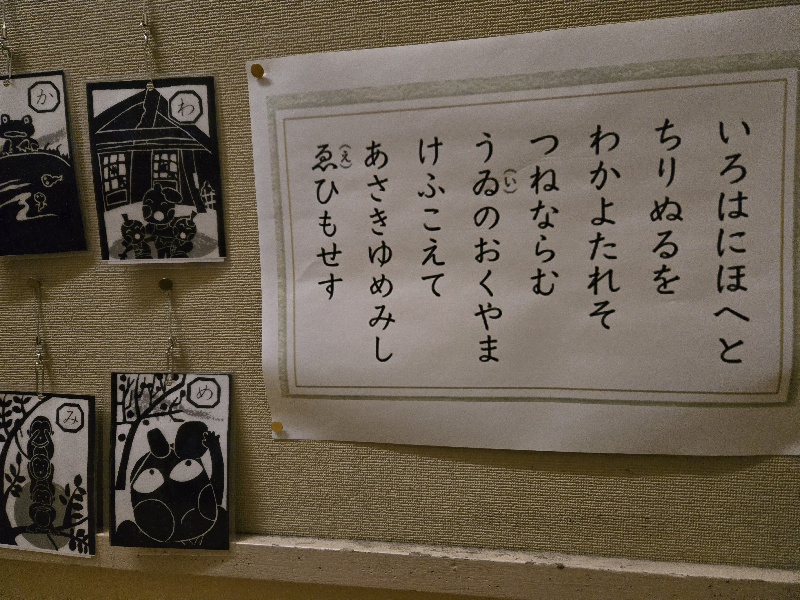 いろはにほへと
ちりぬるを
わかよたれそ
つねならむ
うゐ(い)のおくやま
けふこえて
あさきゆめみし
ゑ(え)ひもせす
か
わ
み
め